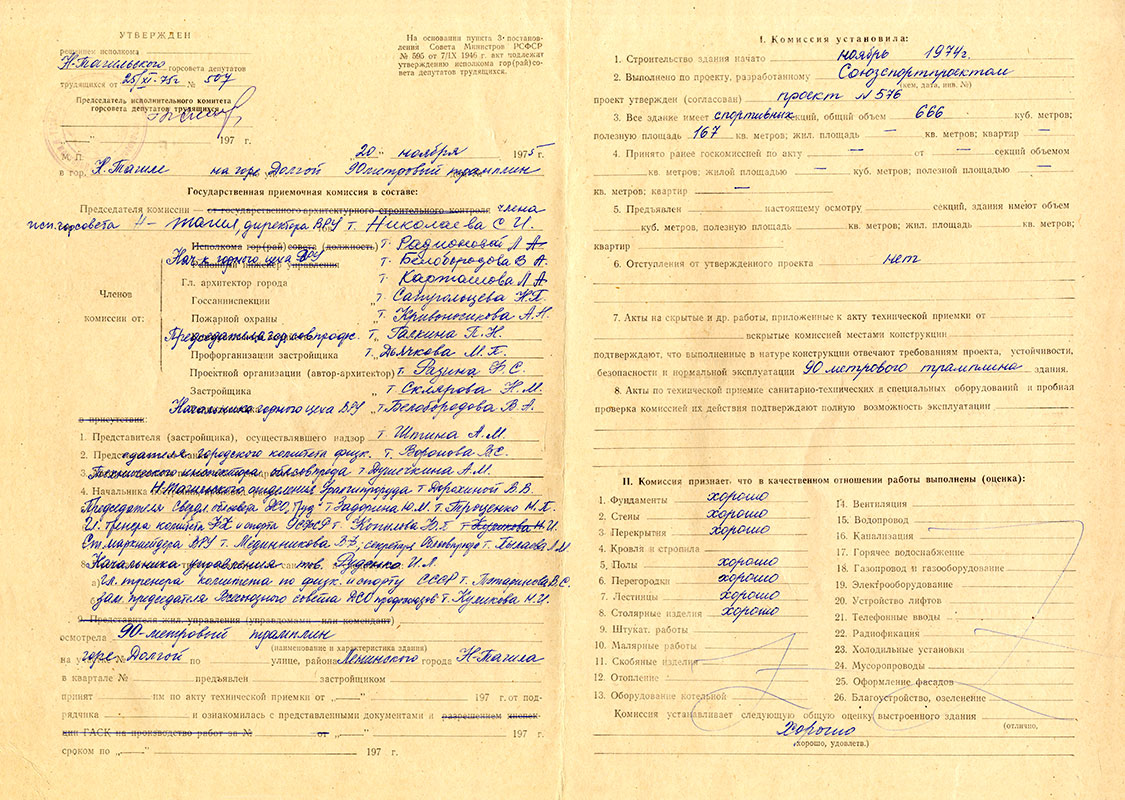 УТВЕРЖДЕН
решением исполкома
Н-Тагильского горсовета депутатов
трудящихся от 25/XI-75г № 507
Председатель исполнительного комитета
горсовета депутатов трудящихся
„ “ 197 г.
М. П.
На основании пункта 3 постанов-
ления Совета Министров РСФСР
№ 595 от 7/IX 1946 г. акт подлежат
утверждению исполкома гор(рай)со-
вета депутатов трудящихся.
„20“ ноября 1975 г.
в гор. Н.Тагиле на горе Долгой 90метровый трамплин
Государственная приемочная комиссия в составе:
Председателя комиссии — ст государственного архитектурного строительного контроля члена
исп. горсовета Н-Тагил, директора ВРУ т. Николаева С И.
Исполкома гор(рай)совета (должность) т. Радионовой Л А
Нач-к горного цеха ВРУ т. Белобородова В А.
Гл. архитектор города т. Карташова Л А
Членов
Госсанинспекции „ т. Сапугольцева Н.П.
комиссии от:
Пожарной охраны „ т. Кривоносикова А.Н.
Председателя горсовпроф. т. Галкина П.Н.
Профорганизации застройщика т. Дьячкова М.П.
Проектной организации (автор-архитектор) т. Разина Ф.С.
Застройщика т Склярова Н.М.
Начальника горного цеха ВРУ т. Белобородова В А.
в присутствии:
1. Представителя (застройщика), осуществлявшего надзор т. Штина А.М.
2. Председателя городского комитета физк. т. Воронова В.С.
3. Технического инспектора облсовпрофа т Душечкина А.М.
4. Начальника Н.Тагильского отделения Уралгипроруда т Дорохиной В.В.
Председателя Свердл. облсовета ДСО „Труд“ т Задорина Ю.М. т. Троценко Н.П.
И. тренера комитета ФК и спорта РСФСР т. Копылова Ю.Г т Кузикова Н.И.
Ст. маркшейдера ВРУ т. Мединникова В.Ф, секретаря Облсовпрофа т. Пылаева Л.М.
Начальника управления тов. Руденко И.Л.
Гл. тренера комитета по физк. и спорту СССР т. Потапинова В.С.
Зам. председателя Всесоюзного совета ДСО профсоюзов т. Куликова Н.И.
9. Представителя жил. управления (управдомами или комендант)
осмотрела 90-метровый трамплин
(наименование и характеристика здания)
на у горе № Долгой по улице, района Ленинского города Н-Тагила
в квартале № предъявлен застройщиком
принят им по акту технической приемки от „ “ 197 г. от под-
рядчика и ознакомилась с представленными документами и разрешением инспек-
ции ГАСК на производство работ за № от
сроком по „ “ 197 г.
I. Комиссия установила:
1. Строительство здания начато ноябрь 1974г.
2. Выполнено по проекту, разработанному Союзспортпроектом
(кем, дата, инв. №)
проект утвержден (согласован) проект №576
3. Все здание имеет спортивных секций, общий объем 666 куб. метров;
полезную площадь 167 кв. метров; жил. площадь — кв. метров; квартир —
4. Принято ранее госкомиссией по акту — от — секций объемом
кв. метров; жилой площадью — куб. метров; полезной площадью
кв. метров; квартир —
5. Предъявлен настоящему осмотру секций, здания имеют объем
куб. метров, полезную площадь кв. метров; жил. площадью кв. метров;
квартир
6. Отступления от утвержденного проекта нет
7. Акты на скрытые и др. работы, приложенные к акту технической приемки от
вскрытые комиссией местами конструкции
подтверждают, что выполненные в натуре конструкции отвечают требованиям проекта, устойчивости,
безопасности и нормальной эксплуатации 90 метрового трамплина здания.
8. Акты по технической приемке санитарно-технических и специальных оборудований и пробная
проверка комиссией их действия подтверждают полную возможность эксплуатации
II. Комиссия признает, что в качественном отношении работы выполнены (оценка):
1. Фундаменты хорошо
2. Стены хорошо
3. Перекрытия хорошо
4. Кровля и стропила
5. Полы хорошо
6. Перегородки хорошо
7. Лестницы хорошо
8. Столярные изделия хорошо
9. Штукат. работы
10. Малярные работы
11. Скобяные изделия
12. Отопление
13. Оборудование котельной
14. Вентиляция
15. Водопровод
16. Канализация
17. Горячее водоснабжение
18. Газопровод и газооборудование
19. Электрооборудование
20. Устройство лифтов
21. Телефонные вводы
22. Радиофикация
23. Холодильные установки
24. Мусоропроводы
25. Оформление фасадов
26. Благоустройство, озеленение
Комиссия устанавливает следующую общую оценку выстроенного здания
(отлично,
хорошо
хорошо, удовлетв.)